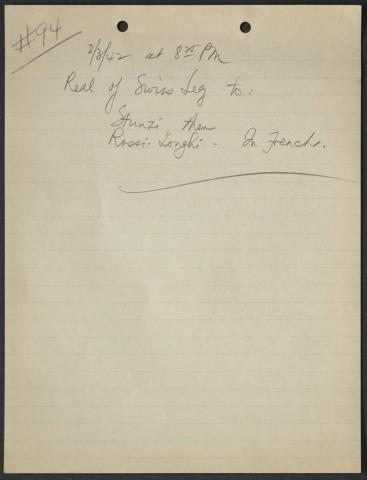 #94
2/3/42 at 8:00 PM
Real of Swiss Leg to:
Stunzi then
Rossi-Longhi - In French.